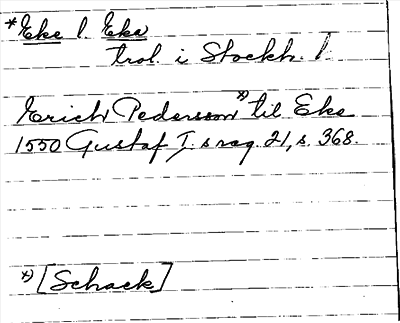 *Eke l. Eka
trol. i Stockh. l.
Erich Pedersson *) til Eke
1550 Gustaf I:s reg. 21, s. 368.
*) [Schack]